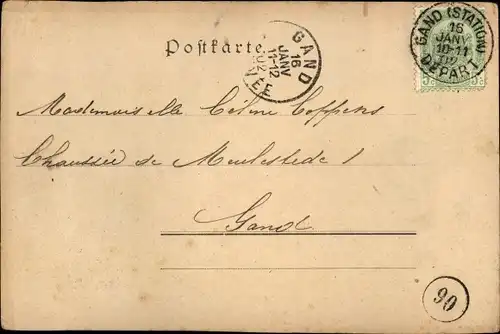 Postkarte.
GAND
16
JANV
11-12
02
VÉE
GAND (STATION)
16
JANV
10-11
02
DÉPART
5c 5c
Mademoiselle Céline Coppens
Chaussée de Meulestede 1
Gand
90